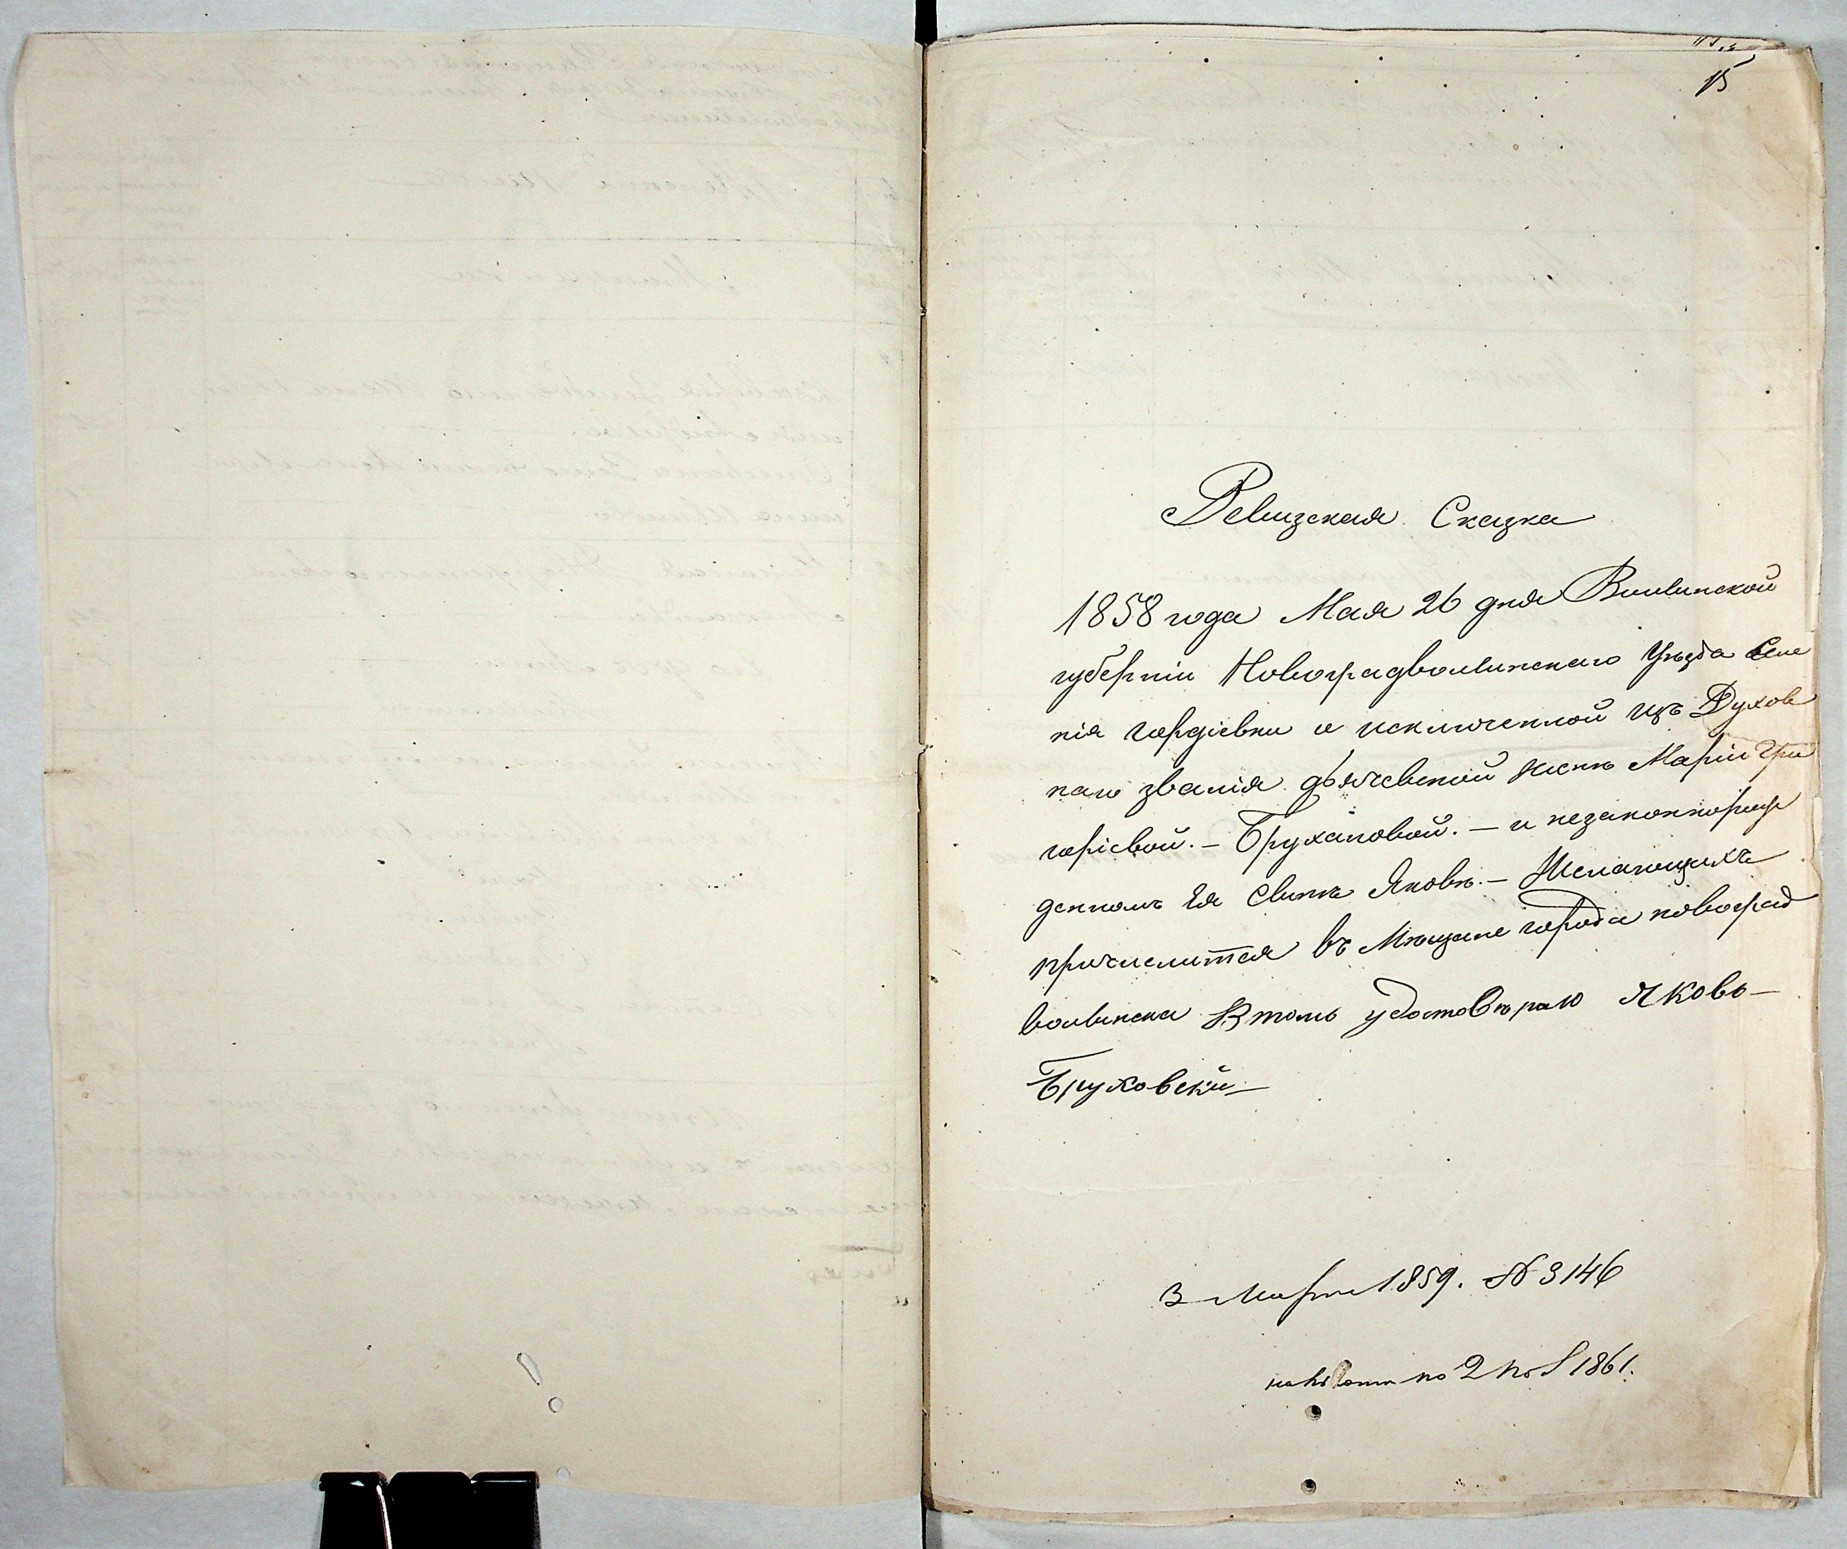 15
Ревизская Сказка
1858 года Мая 26 дня Волынской
губерніи Новоградволынского Уѣзда Селе
нія гордіевки о исключенной изъ Духов
наго званія дьячевской женѣ Маріи Гри
горіевой. — Брухановой. — и незаконнорож
денномъ Ея Сынѣ Яковѣ. — Желающихъ
причислится въ Мѣщане города новоград
волынска Втомъ удостовѣраю Яковъ —
Бруховски —
3 Марта 1859. № 3146
по 2 1861.